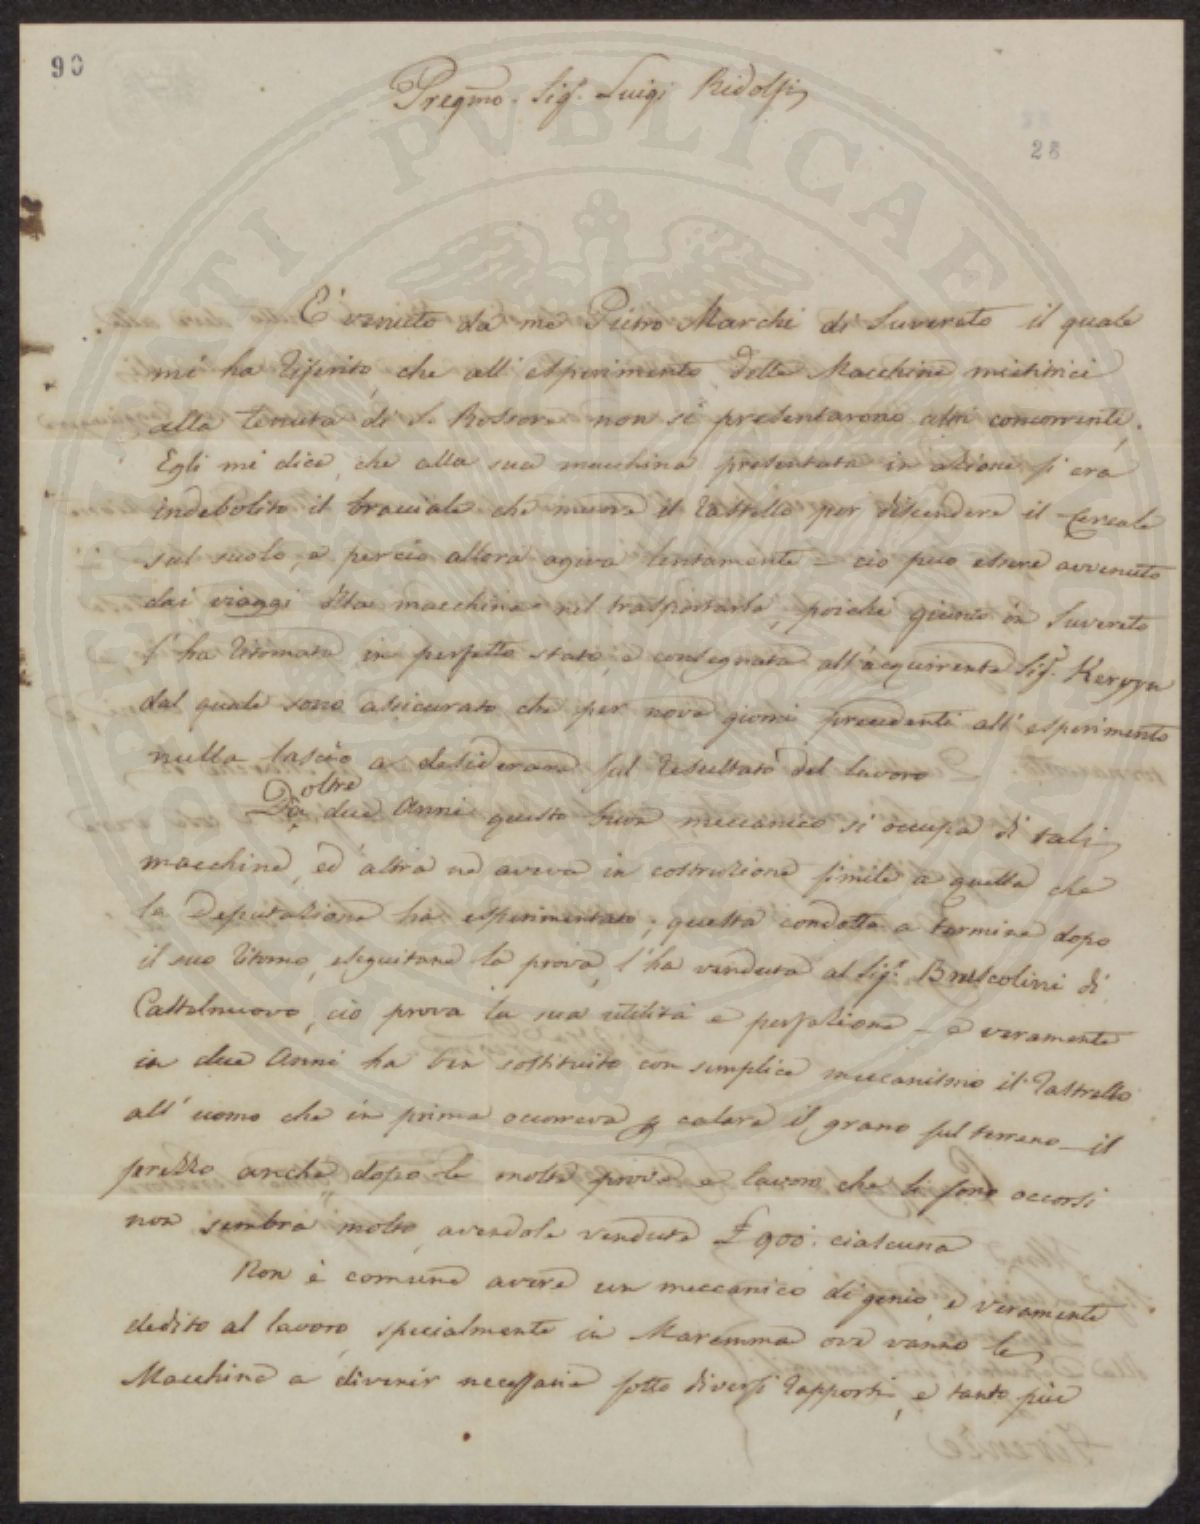 90
Pregmo. Sigr. Luigi Ridolfi
28
E' venuto da me Pietro Marchi di Suvereto il quale
mi ha riferito, che all'esperimento delle Macchine mietitrici
alla tenuta di S. Rossore non si presentarono altri concorrenti,
Egli mi dice, che alla sua macchina presentata in azione si era
indebolito il bracciale che muove il rastrello per discendere il Cereale
sul suolo, e perciò allora agiva lentamente = ciò può essere avvenuto
dai viaggi d'la macchina nel trasportarla, poiché giunto in Suvereto
l'ha ritornata in perfetto stato, e consegnata all'acquirente Sigr. Kergyn
dal quale sono assicurato che per nove giorni precedenti all'esperimento
nulla lasciò a desiderare sul resultato del lavoro
Da oltre due Anni questo buon meccanico si occupa di tali
macchine, ed altra ne aveva in costruzione simile a quella che
la Deputazione ha esperimentato; questa condotta a termine dopo
il suo ritorno, eseguitane la prova, l'ha venduta al Sigr. Bruscolini di
Castelnuovo, ciò prova la sua utilità e perfezione - e veramente
in due Anni ha ben sostituito con semplice meccanismo il rastrello
all'uomo che in prima occorreva p calare il grano sul terreno - il
prezzo anche dopo le molte prove e lavoro che li sono occorsi
non sembra molto, avendole vendute £ 900: ciascuna
Non è comune avere un meccanico di genio, e veramente
dedito al lavoro, specialmente in Maremma ove vanno le
Macchine a divenir necessarie sotto diversi rapporti, e tanto più